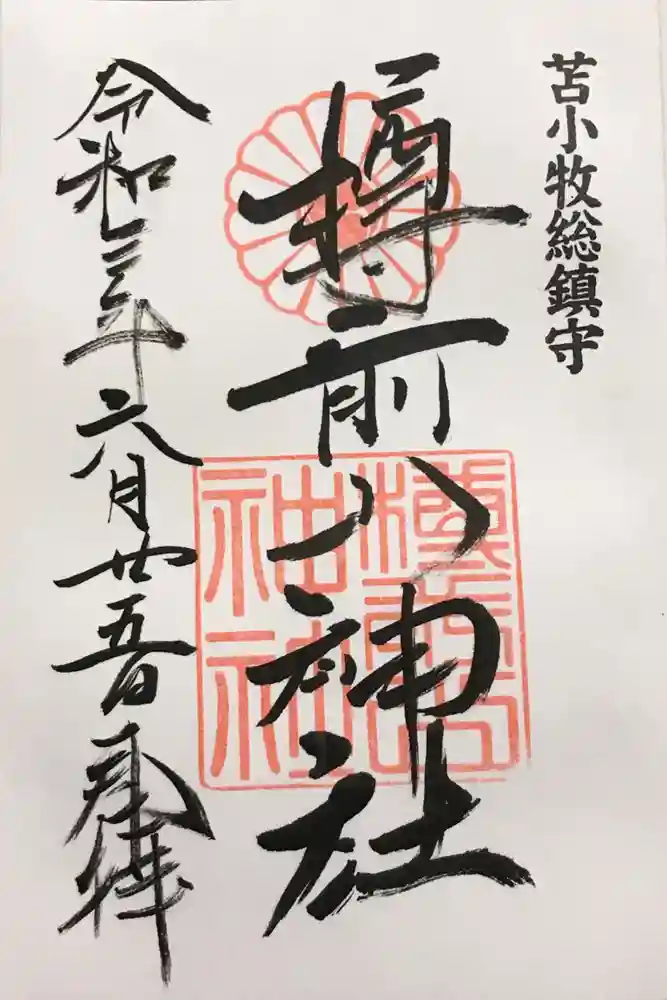 苫小牧総鎮守
樽前山神社
令和三年六月廿五日夙拝
樽前山
神社